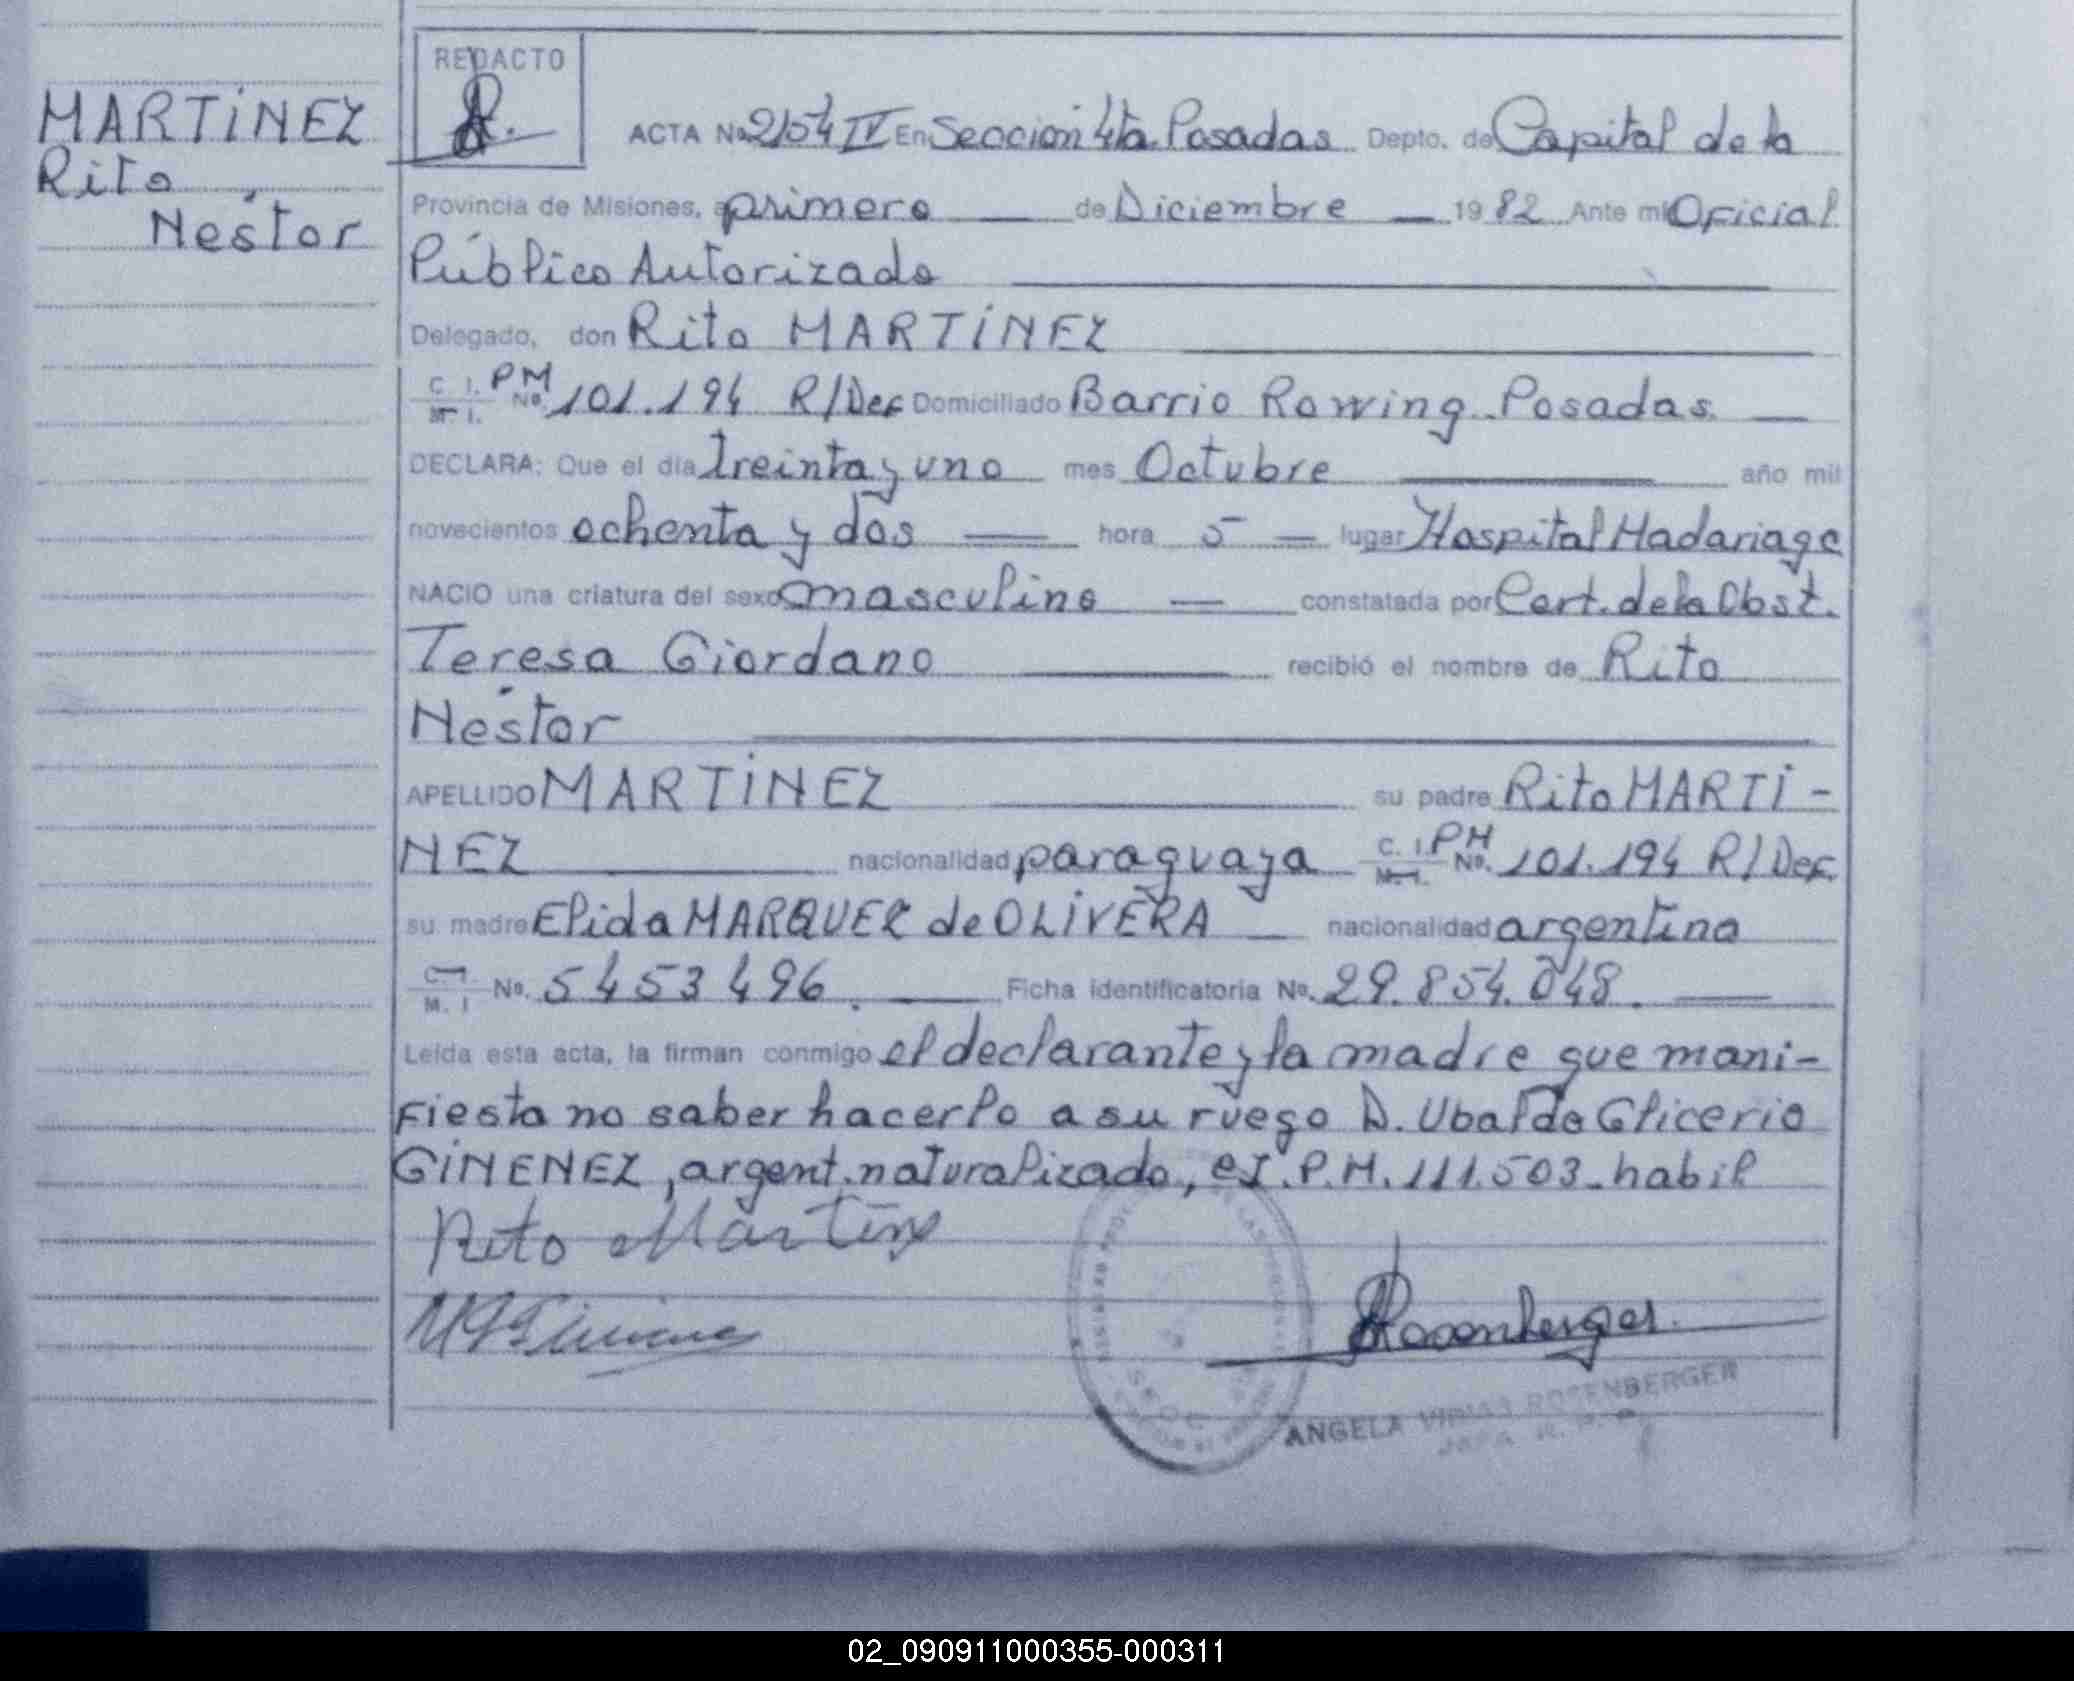 MARTÍNEZ
Rito
Néstor
REDACTO
ACTA No. 2154 IV En Sección 4ta. Posadas Depto. de Capital de la
Provincia de Misiones, a primero de Diciembre 1982 Ante mi Oficial
Público Autorizado
Delegado, don Rito MARTÍNEZ
C. I. PM
M. I. No. 101.194 R/Def Domiciliado Barrio Rowing. Posadas.
DECLARA: Que el día treinta y uno mes Octubre año mil
novecientos ochenta y dos hora 5 lugar Hospital Madariaga
NACIO una criatura del sexo masculino constatada por Cert. de la Obst.
Teresa Giordano recibió el nombre de Rito
Néstor
APELLIDO MARTÍNEZ su padre Rito MARTÍ-
NEZ nacionalidad paraguaya C. I. PM M. I. No. 101.194 R/Def.
su madre Elida MARQUEZ de OLIVERA nacionalidad argentina
C. I. M. I No. 5453496. Ficha identificatoria No. 29.854.048.
Leída esta acta, la firman conmigo el declarante y la madre que mani-
fiesta no saber hacerlo a su ruego D. Ubaldo Glicerio
GIMENEZ, argent. naturalizado, CI. P.M. 111.503 - habil
Rito Martinez
Rosenberger.
ANGELA ROSENBERGER
02_090911000355-000311